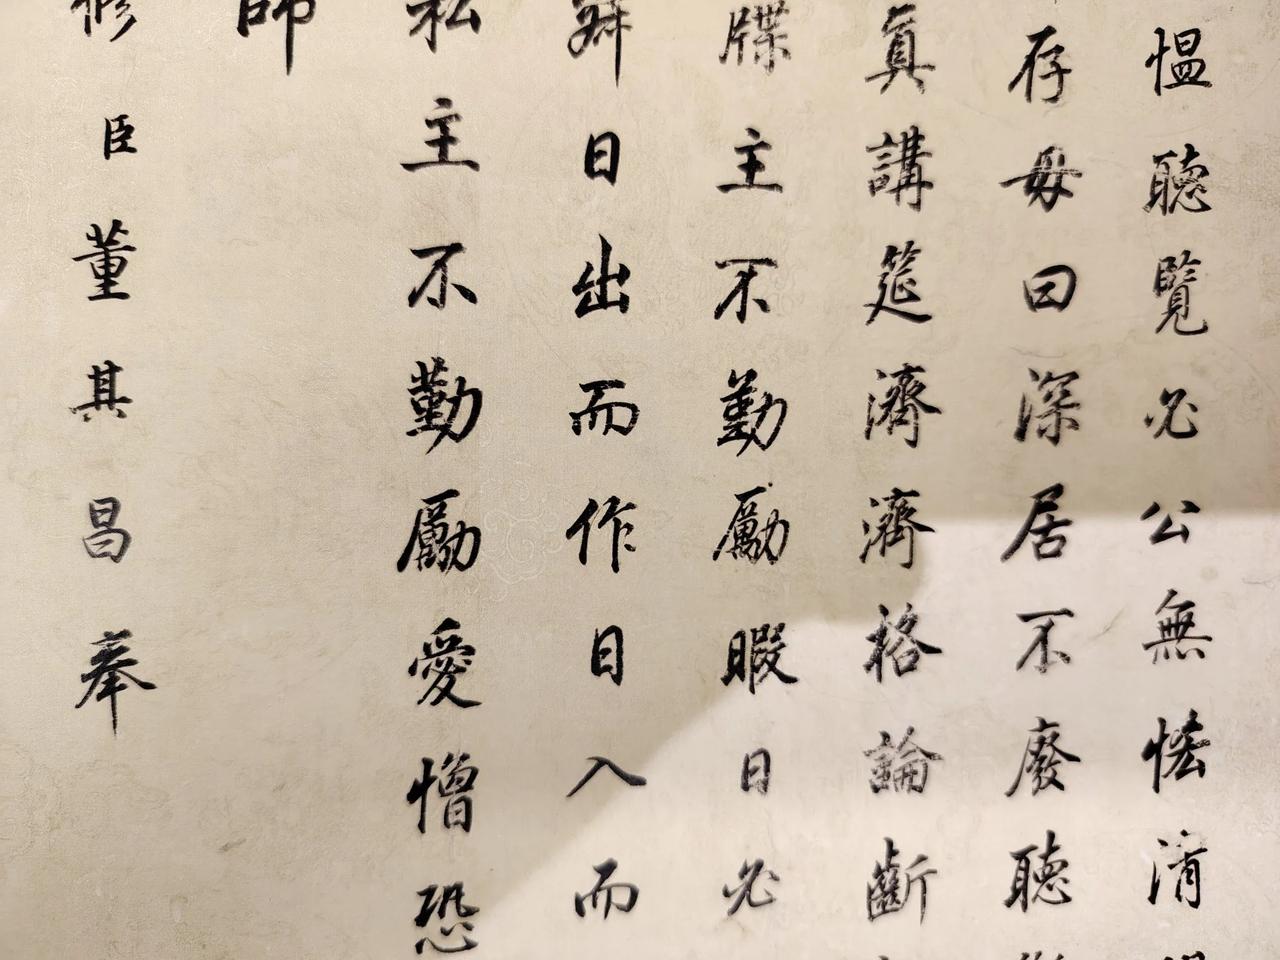 愠聽覽必公無惓清
存毋曰深居不廢聽
真講筵濟濟格論斷
牒主不勤勵暇日必
辭日出而作日入而
私主不勤勵愛憎恐
師
修臣董其昌奉